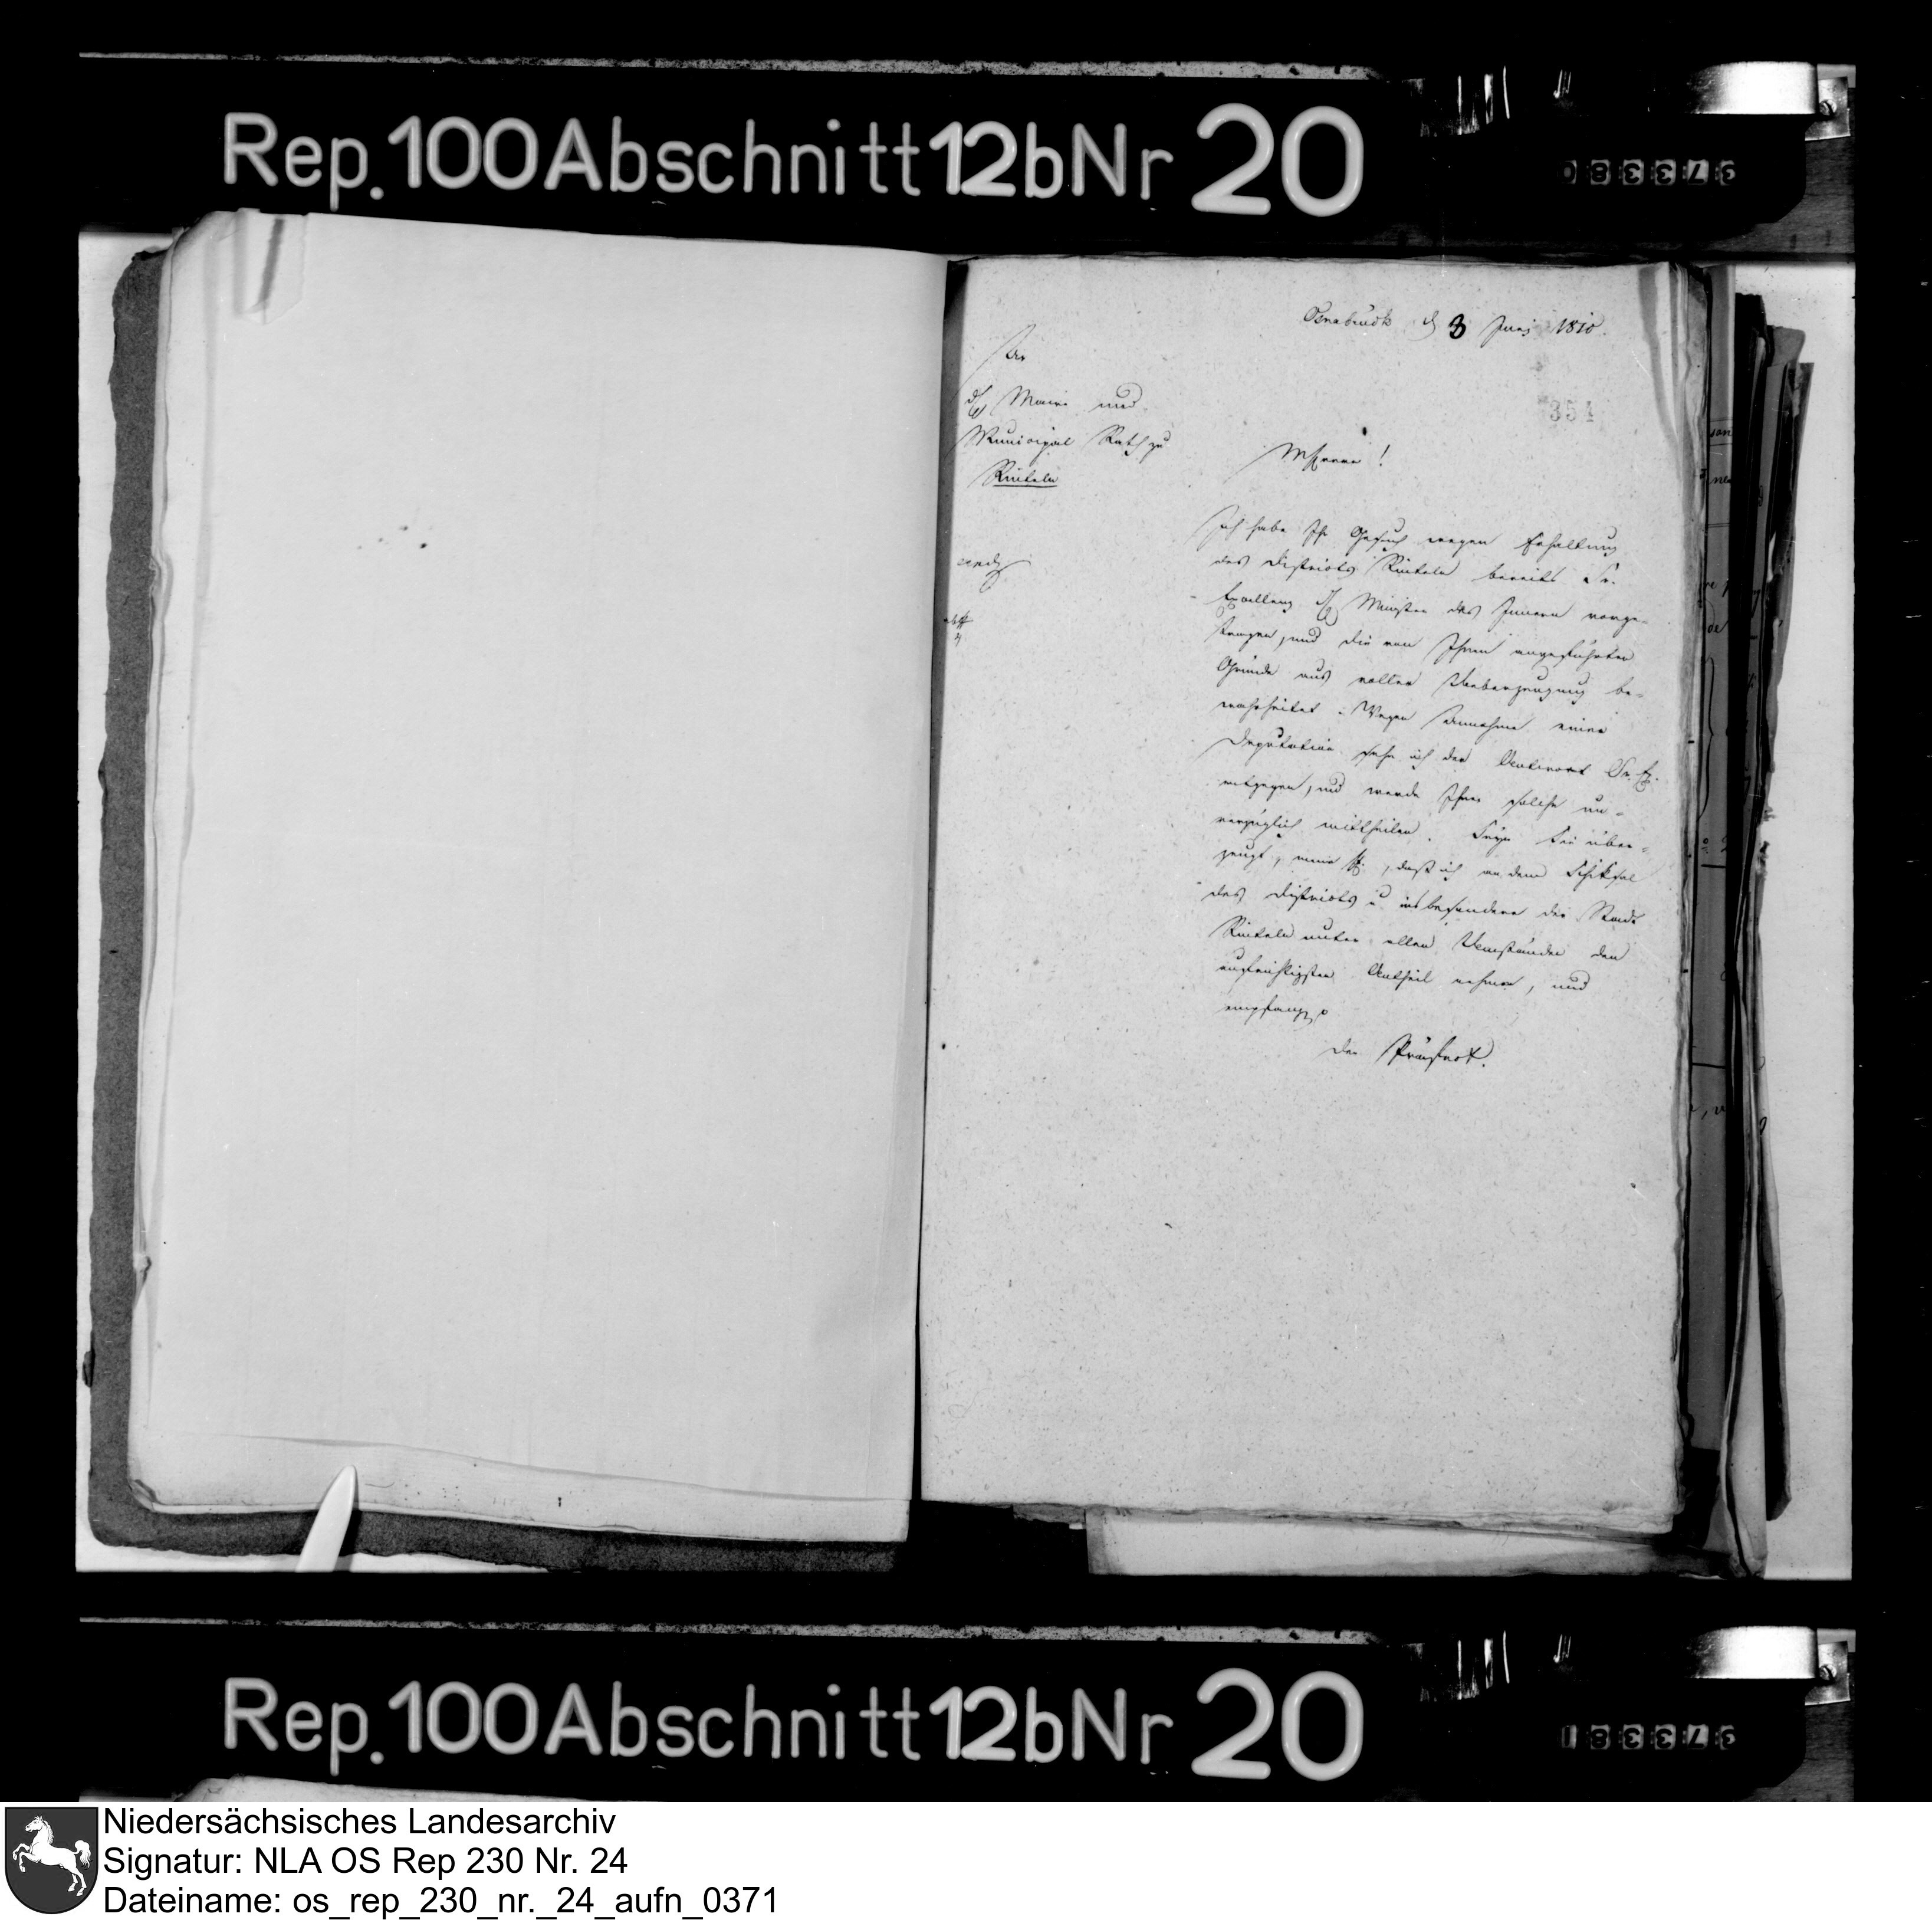 Rep. 100 Abschnitt 12b Nr 20
373380
Osnabrück d 8 Juni 1810.
354
An
d H Maire und
Municipal Rath zu
Rinteln
MHerren!
Ich habe Ihr Gesuch wegen Erhaltung
des Districts Rinteln bereits Sr.
Excellenz d H Minister des Innern vorge-
tragen, und die von Ihnen angeführten
Gründe aus voller Ueberzeugung be-
wahrheitet. Wegen Annahme einer
Deputation sehe ich der Antwort Sr. Ex.
entgegen, und werde Ihnen solche un-
verzüglich mittheilen. Seyn Sie über-
zeugt, meine HH., daß ich an dem Schiksal
des Districts u insbesondere der Stadt
Rinteln unter allen Umständen den
aufrichtigsten Antheil nehme, und
empfang
der Präfect.
Rep. 100 Abschnitt 12b Nr 20
373381
Niedersächsisches Landesarchiv
Signatur: NLA OS Rep 230 Nr. 24
Dateiname: os_rep_230_nr._24_aufn_0371